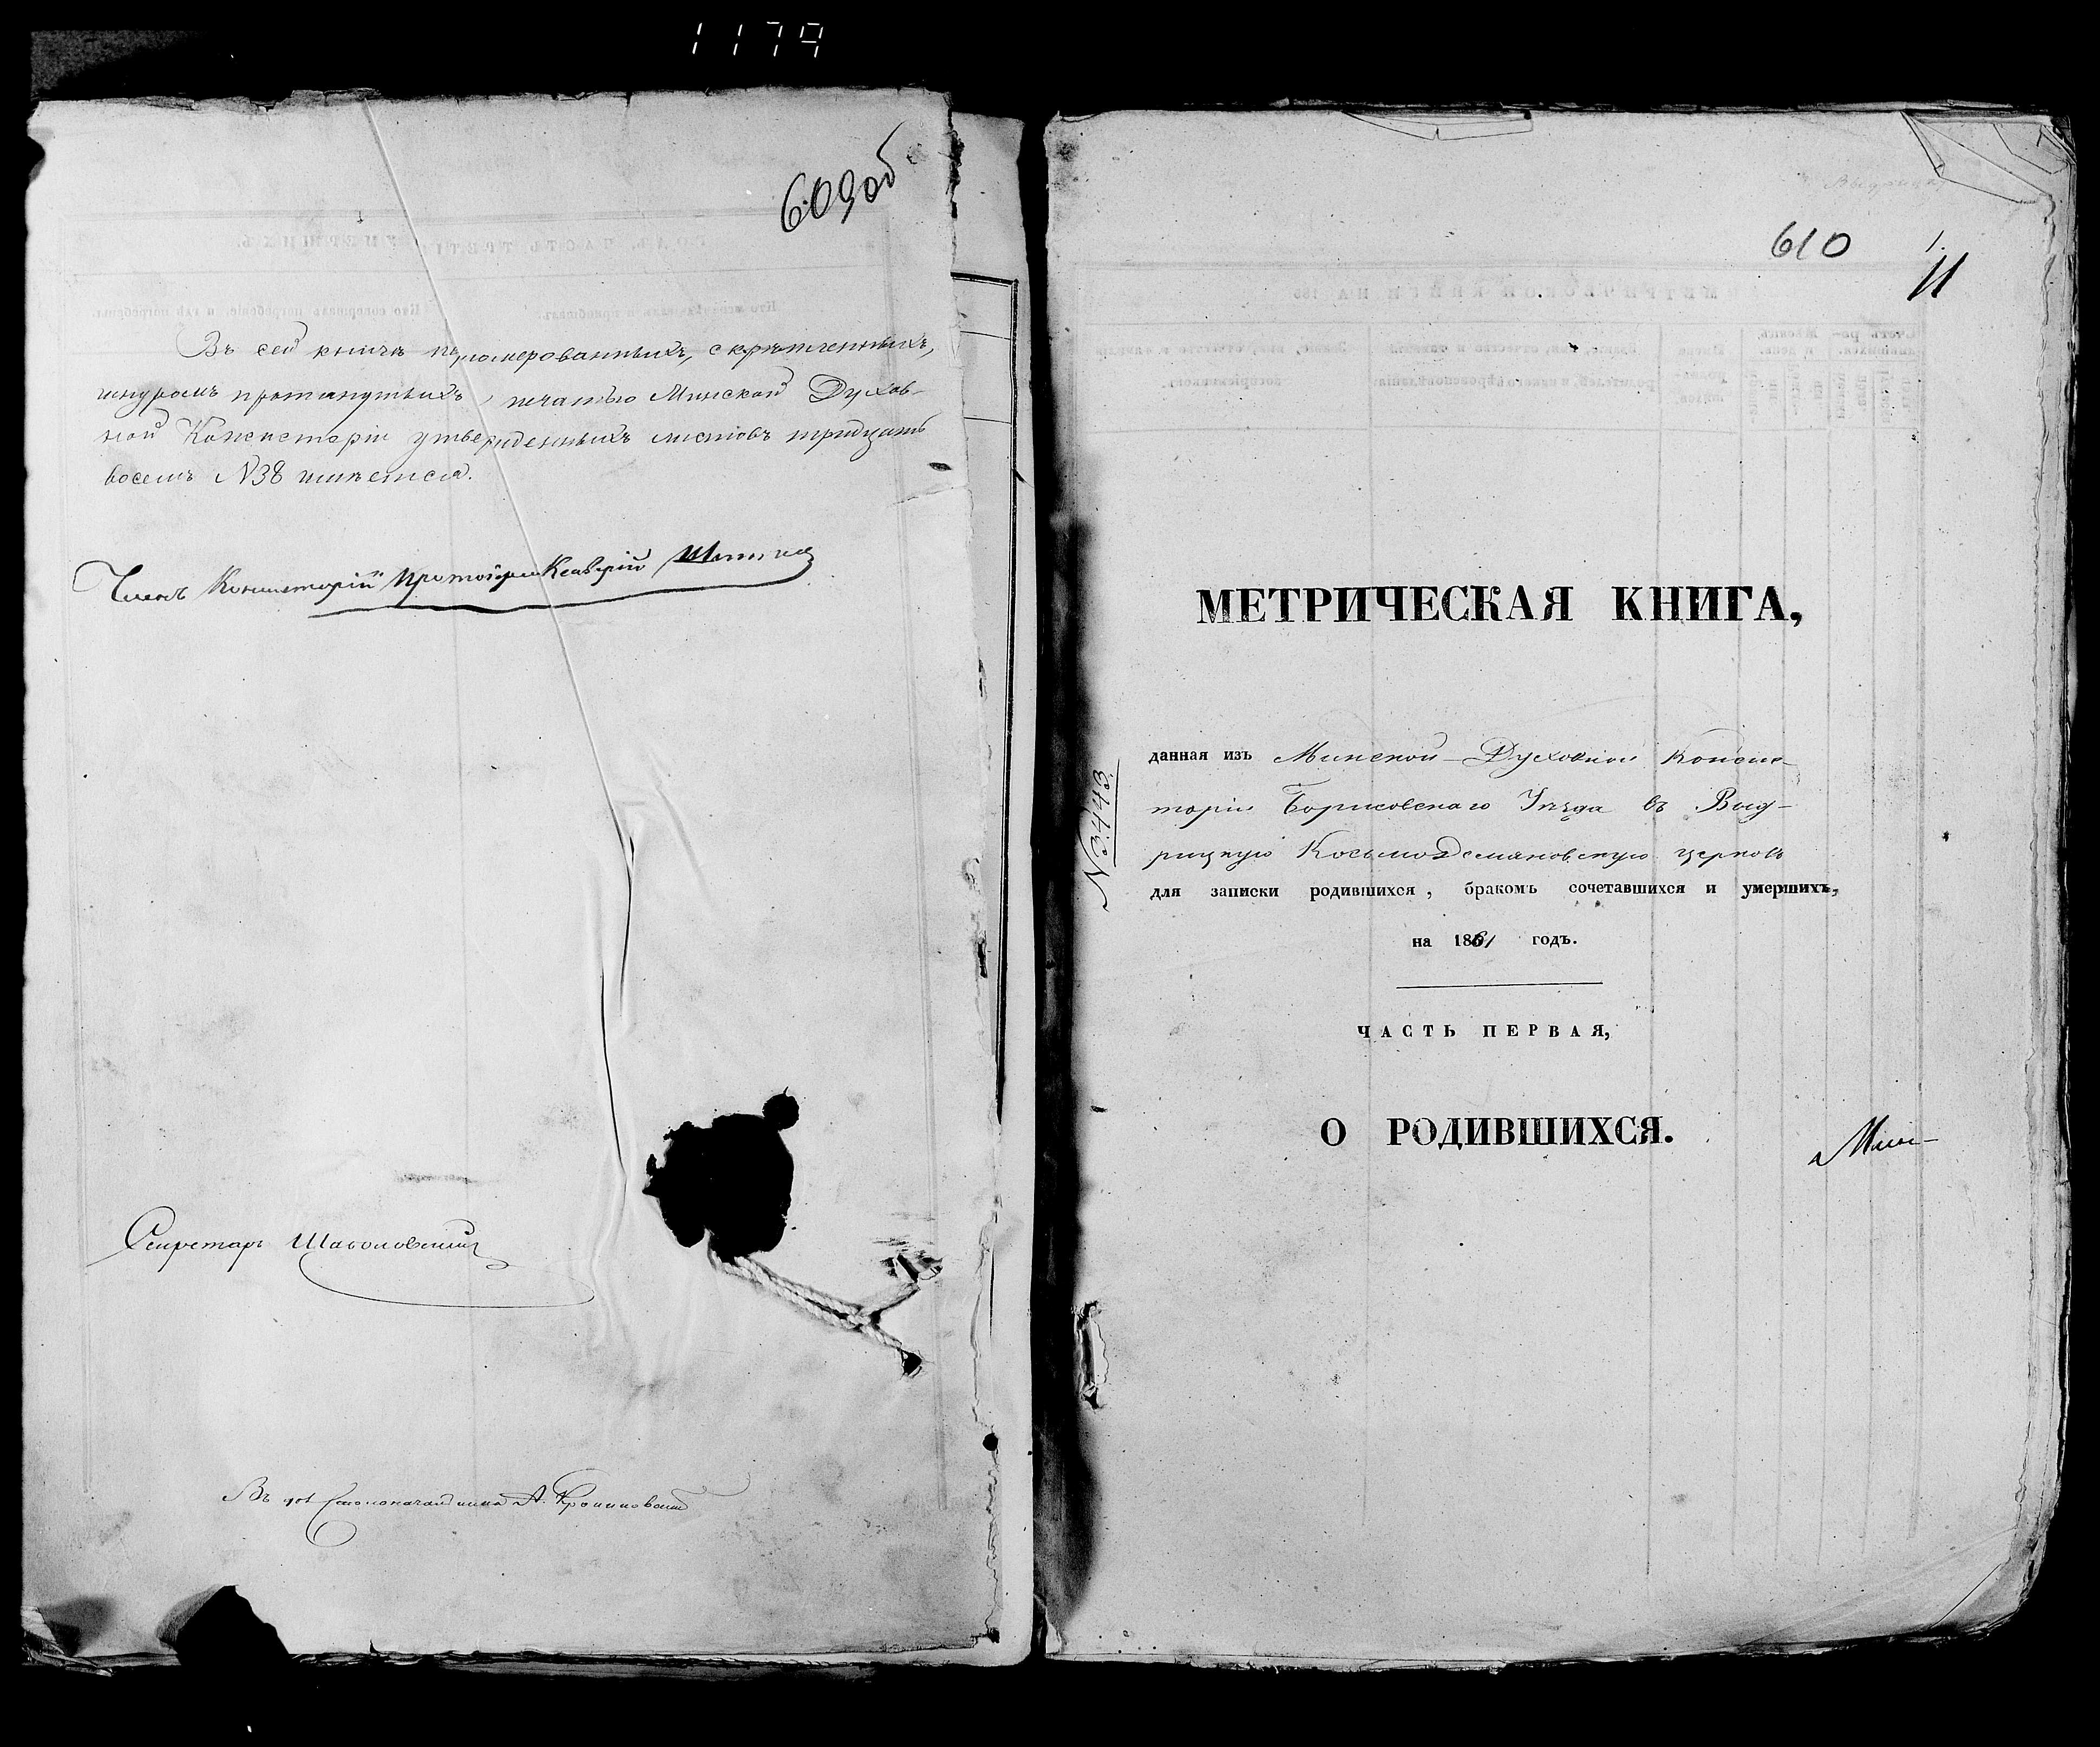 1179
609об
Въ сей книгѣ пономерованныхъ, скрѣпленныхъ,
шнуромъ протянутыхъ, печатью Минской Духов-
ной Консисторіи утвержденныхъ листовъ тридцать
восемь №38 имѣется.
Членъ Консисторіи Протоіерей Ксаверій
Секретарь
Столоначальника А.
610
1.
11
МЕТРИЧЕСКАЯ КНИГА,
№3443.
данная изъ Минской Духовной Консис-
торіи Борисовскаго Уѣзда въ Выд-
рицкую Косьмодемяновскую церковь
для записки родившихся, бракомъ сочетавшихся и умершихъ,
на 1861 годъ.
ЧАСТЬ ПЕРВАЯ,
О РОДИВШИХСЯ.